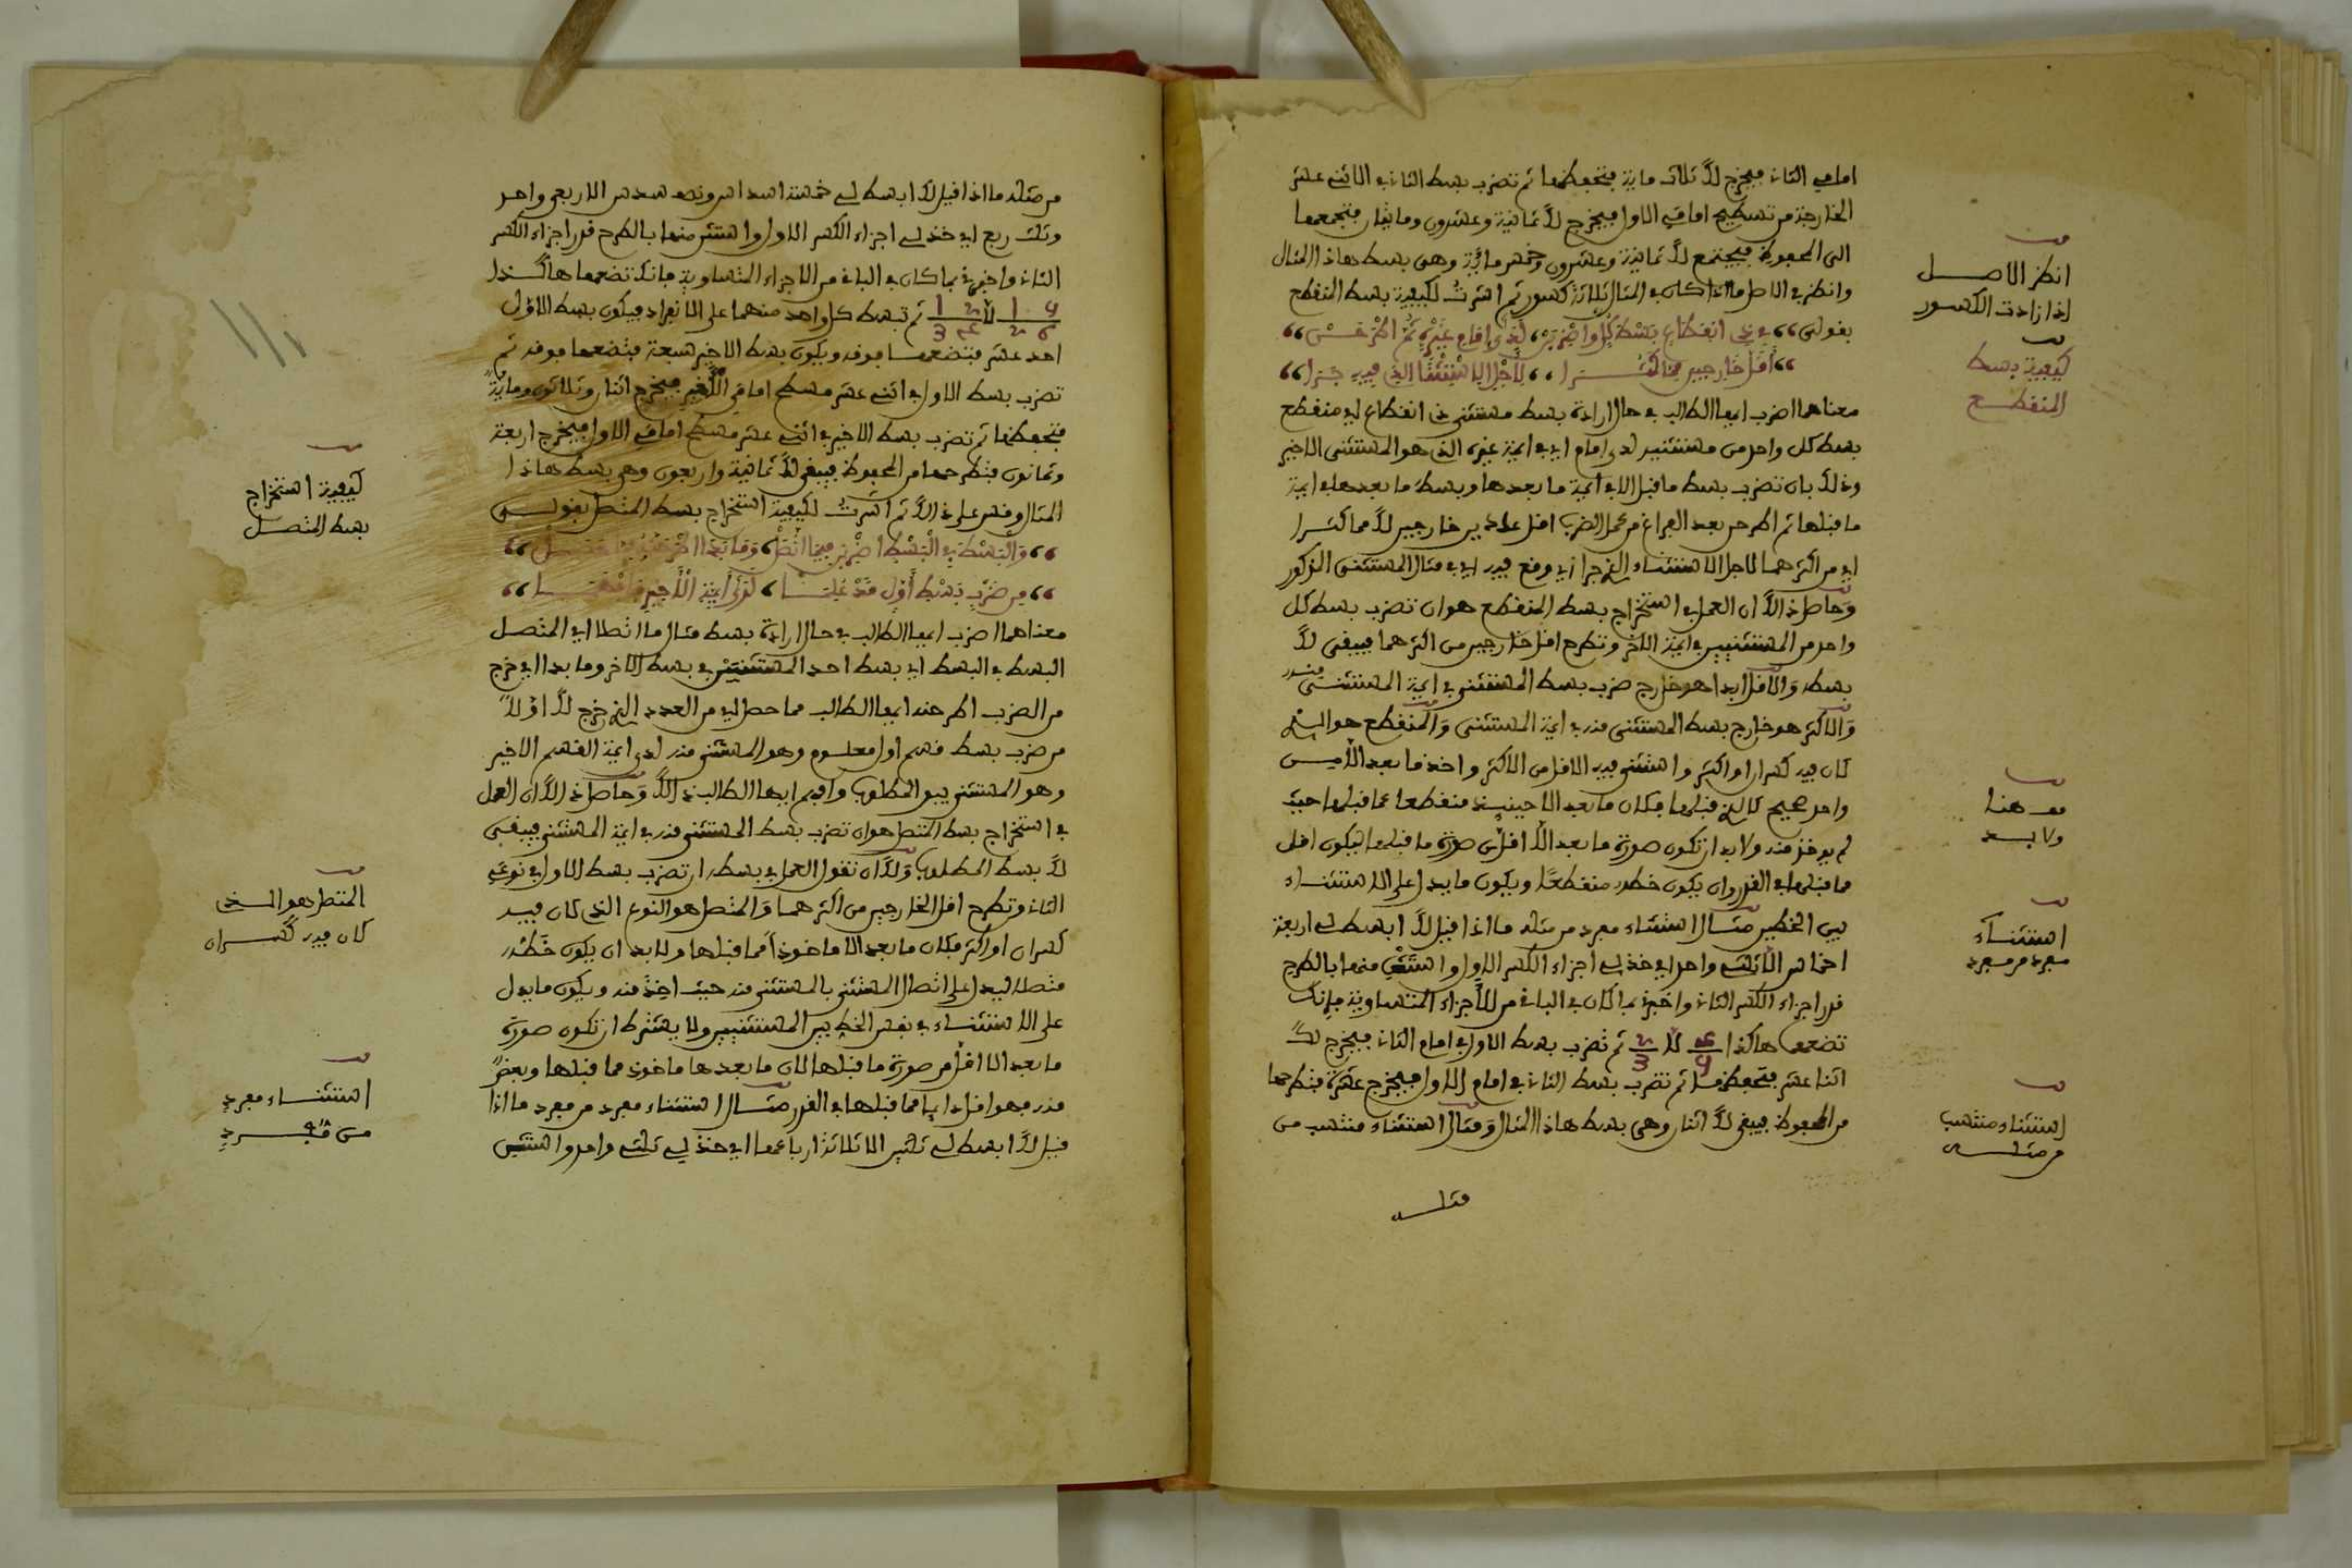 امامي الثاني فيخرج لك ثلاث ماية فتحفظها ثم تضرب بسط الثاني في الاثني عشر
الخارجة من تسطيح امامي الاول فيخرج لك ثمانية وعشرون ومايتان فتجمعها
الى المحفوظ فيجتمع لك ثمانية وعشرون وخمس مائة وهي بسط هاذا المثال
وانظر في الاصل ما اذا كان في المثال ثلاثة كسور ثم اشرت لكيفية بسط المنقطع
بقولي ،، في ذي انقطاع بسط كل واضربن ،، لدى امام غيره ثم اطرحن ،،
،، اقل خارجين مما كثرا ،، لاجل الاستثنا الذي فيه جرا ،،
معناهما اضرب ايها الطالب في حال ارادة بسط مستثنى ذي انقطاع اي منقطع
بسط كل واحد من مستثنيين لدى امام اي في ايمة غيره الذي هو المستثنى الاخير
وذلك بان تضرب بسط ما قبل الا في ايمة ما بعدها وبسط ما بعدها في ايمة
ما قبلها ثم اطرحن بعد الفراغ من عمل الضرب اقل عددين خارجين لك مما كثرا
اي من اكثرهما لاجل الاستثناء الذي جرا اي وقع فيه اي في مثال المستثنى المذكور
وحاصل ذالك ان العمل في استخراج بسط المنقطع هو ان تضرب بسط كل
واحد من المستثنيين في ايمة الاخر وتطرح اقل خارجين من اكثرهما فيبقى لك
بسطه والاقل ابدا هو خارج ضرب بسط المستثنى في ايمة المستثنى منه
والاكثر هو خارج بسط المستثنى منه في ايمة المستثنى والمنقطع هو الذي
كان فيه كسران او اكثر واستثني فيه الاقل من الاكثر واخذ ما بعد الا من
واحد صحيح كالذي قبلها فكان ما بعد الا حينئذ منقطعا عما قبلها حيث
لم يوخذ منه ولا بد ان تكون صورة ما بعد الا اقل من صورة ما قبلها ليكون اقل
مما قبلها في القدر وان يكون خطه منقطعا ويكون ما يدل على الاستثناء
بين الخطين مثال استثناء مفرد من مثله ما اذا قيل لك ابسط لي اربعة
اخماس الا ثلثي واحد اي خذ لي اجزاء الكسر الاول واستثن منها بالطرح
قدر اجزاء الكسر الثاني واخبرني بما كان في الباقي من الاجزاء المتساوية فانك
تضعها هاكذا 4/5 الا 2/3 ثم تضرب بسط الاول في امام الثاني فيخرج لك
اثنا عشر فتحفظها ثم تضرب بسط الثاني في امام الاول فيخرج عشرة فتطرحها
من المحفوظ فيبقى لك اثنان وهي بسط هاذا المثال ومثال استثناء منتسب من
مثله
انظر الاصل
اذا زادت الكسور
كيفية بسط
المنقطع
قف هنا
ولا بد
استثناء
مفرد من مفرد
استثناء منتسب
من مثله
من مثله ما اذا قيل لك ابسط لي خمسة اسداس ونصف سدس الا ربعي واحد
وثلث ربع اي خذ لي اجزاء الكسر الاول واستثن منها بالطرح قدر اجزاء الكسر
الثاني واخبرني بما كان في الباقي من الاجزاء المتساوية فانك تضعها هاكذا
1 5/2 6 الا 1 2/3 4 ثم تبسط كل واحد منهما على الانفراد فيكون بسط الاول
احد عشر فتضعها فوقه ويكون بسط الاخير سبعة فتضعها فوقه ثم
تضرب بسط الاول في اثني عشر مسطح امامي الاخير فيخرج اثنان وثلاثون وماية
فتحفظها ثم تضرب بسط الاخير في اثني عشر مسطح امامي الاول فيخرج اربعة
وثمانون فتطرحها من المحفوظ فيبقى لك ثمانية واربعون وهي بسط هاذا
المثال وقس على ذالك ثم اشرت لكيفية استخراج بسط المتصل بقولي
،، والبسط في البسط اضربن فيما اتصل ،، وما بدا اطرحنه مما حصل ،،
،، من ضرب بسط اول قد علما ،، لدى ايمة الاخير فافهما ،،
معناهما اضرب ايها الطالب في حال ارادة بسط مثال ما اتصل اي المتصل
البسط في البسط اي بسط احد المستثنيين في بسط الاخر وما بدا اي خرج
من الضرب اطرحنه ايها الطالب مما حصل اي من العدد الذي خرج لك اولا
من ضرب بسط قسم اول معلوم وهو المستثنى منه لدى ايمة القسم الاخير
وهو المستثنى يبدو المطلوب وافهم ايها الطالب ذالك وحاصل ذالك ان العمل
في استخراج بسط المتصل هو ان تضرب بسط المستثنى منه في ايمة المستثنى فيبقى
لك بسط المطلوب ولك ان تقول العمل في بسطه ان تضرب بسط الاول في نوعي
الثاني وتطرح اقل الخارجين من اكثرهما والمتصل هو النوع الذي كان فيه
كسران او اكثر فكان ما بعد الا ماخوذا مما قبلها ولا بد ان يكون خطه
متصلا ليدل على اتصال المستثنى بالمستثنى منه حيث اخذ منه ويكون ما يدل
على الاستثناء في نفس الخط بين المستثنيين ولا يشترط ان تكون صورة
ما بعد الا اقل من صورة ما قبلها لان ما بعدها ماخوذ مما قبلها وبعض
منه فهو اقل ابدا مما قبلها في القدر مثال استثناء مفرد من مفرد ما اذا
قيل لك ابسط لي ثلثين الا ثلاثة ارباعها اي خذ لي ثلثي واحد واستثن
كيفية استخراج
بسط المتصل
المتصل هو الذي
كان فيه كسران
استثناء مفرد
من مفرد